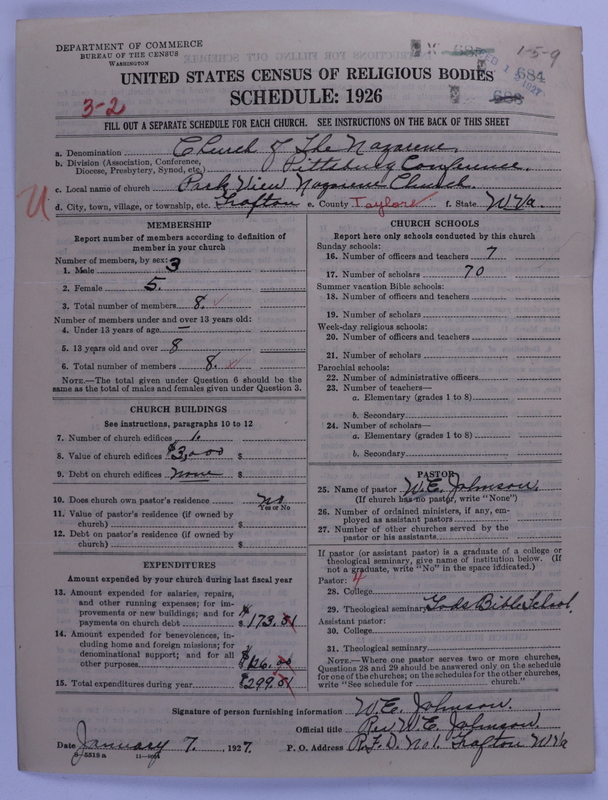 DEPARTMENT OF COMMERCE
BUREAU OF THE CENSUS
WASHINGTON
1-5-9
684
UNITED STATES CENSUS OF RELIGIOUS BODIES
SCHEDULE: 1926
3-2
FILL OUT A SEPARATE SCHEDULE FOR EACH CHURCH. SEE INSTRUCTIONS ON THE BACK OF THIS SHEET
a. Denomination Church of The Nazarene.
b. Division (Association, Conference, Diocese, Presbytery, Synod, etc.) Pittsburg Conference.
c. Local name of church Park View Nazarene Church.
d. City, town, village, or township, etc. Grafton e. County Taylor f. State W.Va.
MEMBERSHIP
Report number of members according to definition of
member in your church
Number of members, by sex:
1. Male 3
2. Female 5.
3. Total number of members 8.
Number of members under and over 13 years old:
4. Under 13 years of age –
5. 13 years old and over 8
6. Total number of members 8.
NOTE.—The total given under Question 6 should be
same as the total of males and females given under Question 3.
CHURCH BUILDINGS
See instructions, paragraphs 10 to 12
7. Number of church edifices 1.
8. Value of church edifices $3,000 $
9. Debt on church edifices none $
10. Does church own pastor's residence no
Yes or No
11. Value of pastor's residence (if owned by
church) $
12. Debt on pastor's residence (if owned by
church) $
EXPENDITURES
Amount expended by your church during last fiscal year
13. Amount expended for salaries, repairs,
and other running expenses; for im-
provements or new buildings; and for
payments on church debt $173.81
14. Amount expended for benevolences, in-
cluding home and foreign missions; for
denominational support; and for all
other purposes $126.00
15. Total expenditures during year $299.81
CHURCH SCHOOLS
Report here only schools conducted by this church
Sunday schools:
16. Number of officers and teachers 7
17. Number of scholars 70
Summer vacation Bible schools:
18. Number of officers and teachers
19. Number of scholars
Week-day religious schools:
20. Number of officers and teachers
21. Number of scholars
Parochial schools:
22. Number of administrative officers
23. Number of teachers—
a. Elementary (grades 1 to 8)
b. Secondary
24. Number of scholars—
a. Elementary (grades 1 to 8)
b. Secondary
PASTOR
25. Name of pastor W.E. Johnson.
(If church has no pastor, write "None")
26. Number of ordained ministers, if any, em-
ployed as assistant pastors
27. Number of other churches served by the
pastor or his assistants
If pastor (or assistant pastor) is a graduate of a college or
theological seminary, give name of institution below. (If
not a graduate, write "No" in the space indicated.)
Pastor: 4
28. College
29. Theological seminary Gods Bible School.
Assistant pastor:
30. College
31. Theological seminary
NOTE.—Where one pastor serves two or more churches,
Questions 28 and 29 should be answered only on the schedule
for one of the churches; on the schedules for the other churches,
write "See schedule for church."
Signature of person furnishing information W.E. Johnson.
Official title Rev. W.E. Johnson
Date January 7, 1927. P. O. Address R.F.D. No 1. Grafton W.Va